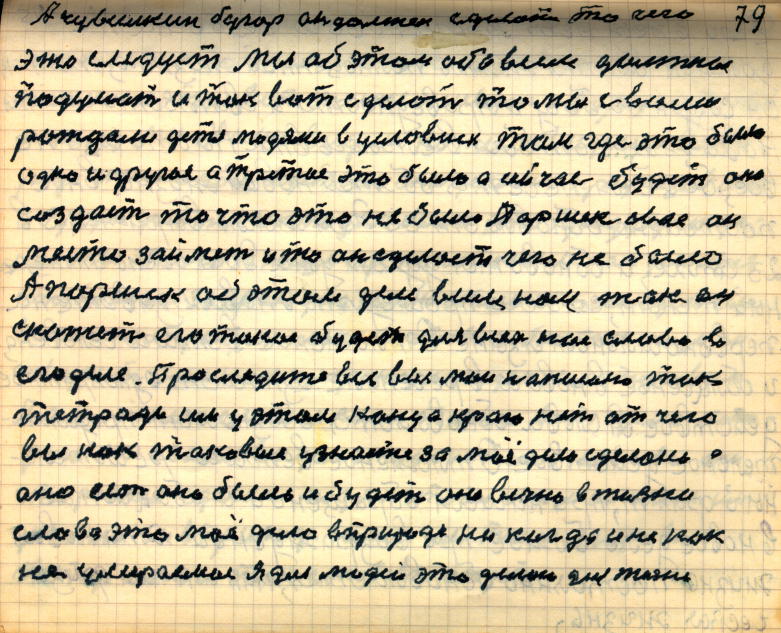 А чувилкин бугор он должен сделат то чего 79
это следует Мы об этом обо всем должны
подумат и так вот сделат то мы с вами
рождали детя людями в условиях там где это было
одно и другое а третие это было а сичас будет оно
создаст то что это не было Паршек свое он
место займет и то он сделает чего не было
А Паршек об этом деле всем нам так он
скажет его такое будет для всех нас слово во
его деле. Проследите все вы мои написано так
тетради им у этом конца краю нет от чего
вы как таковые узнаете за моё дело сделано
оно есть оно было и будет оно вечно в жизни
слова это моё дело в природе ни когда и не как
не умираемое Я для людей это делаю для жизни